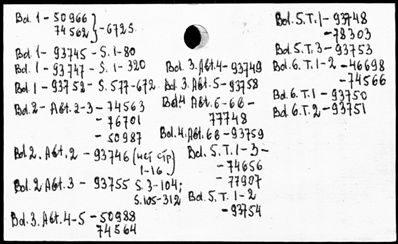 Bd. 1 - 50966
74562 } - 672 S.
Bd 1 - 93745 - S. 1-80
Bd. 1 - 93747 - S. 1-320
Bd. 1 - 93752 - S. 577-672
Bd. 2 - Abt. 2-3 - 74563
- 76701
- 50987
Bd 2. Abt. 2 - 93746
1-16)
Bd. 2 Abt. 3 - 93755 S. 3-104;
S. 105-312
Bd. 3. Abt. 4-5 - 50988
74564
Bd. 3. Abt. 4 - 93749
Bd. 3. Abt. 5 - 93758
Bd 4 Abt. 6-6B -
77748
Bd. 4. Abt. 6B - 93759
Bd. 5. T. 1-3 -
- 74656
- 77907
Bd. 5. T. 1-2
- 93754
Bd. 5. T. 1 - 93748
- 78303
Bd. 5. T. 3 - 93753
Bd. 6. T. 1-2 - 46698
- 74566
Bd. 6. T. 1 - 93750
Bd 6. T. 2 - 93751